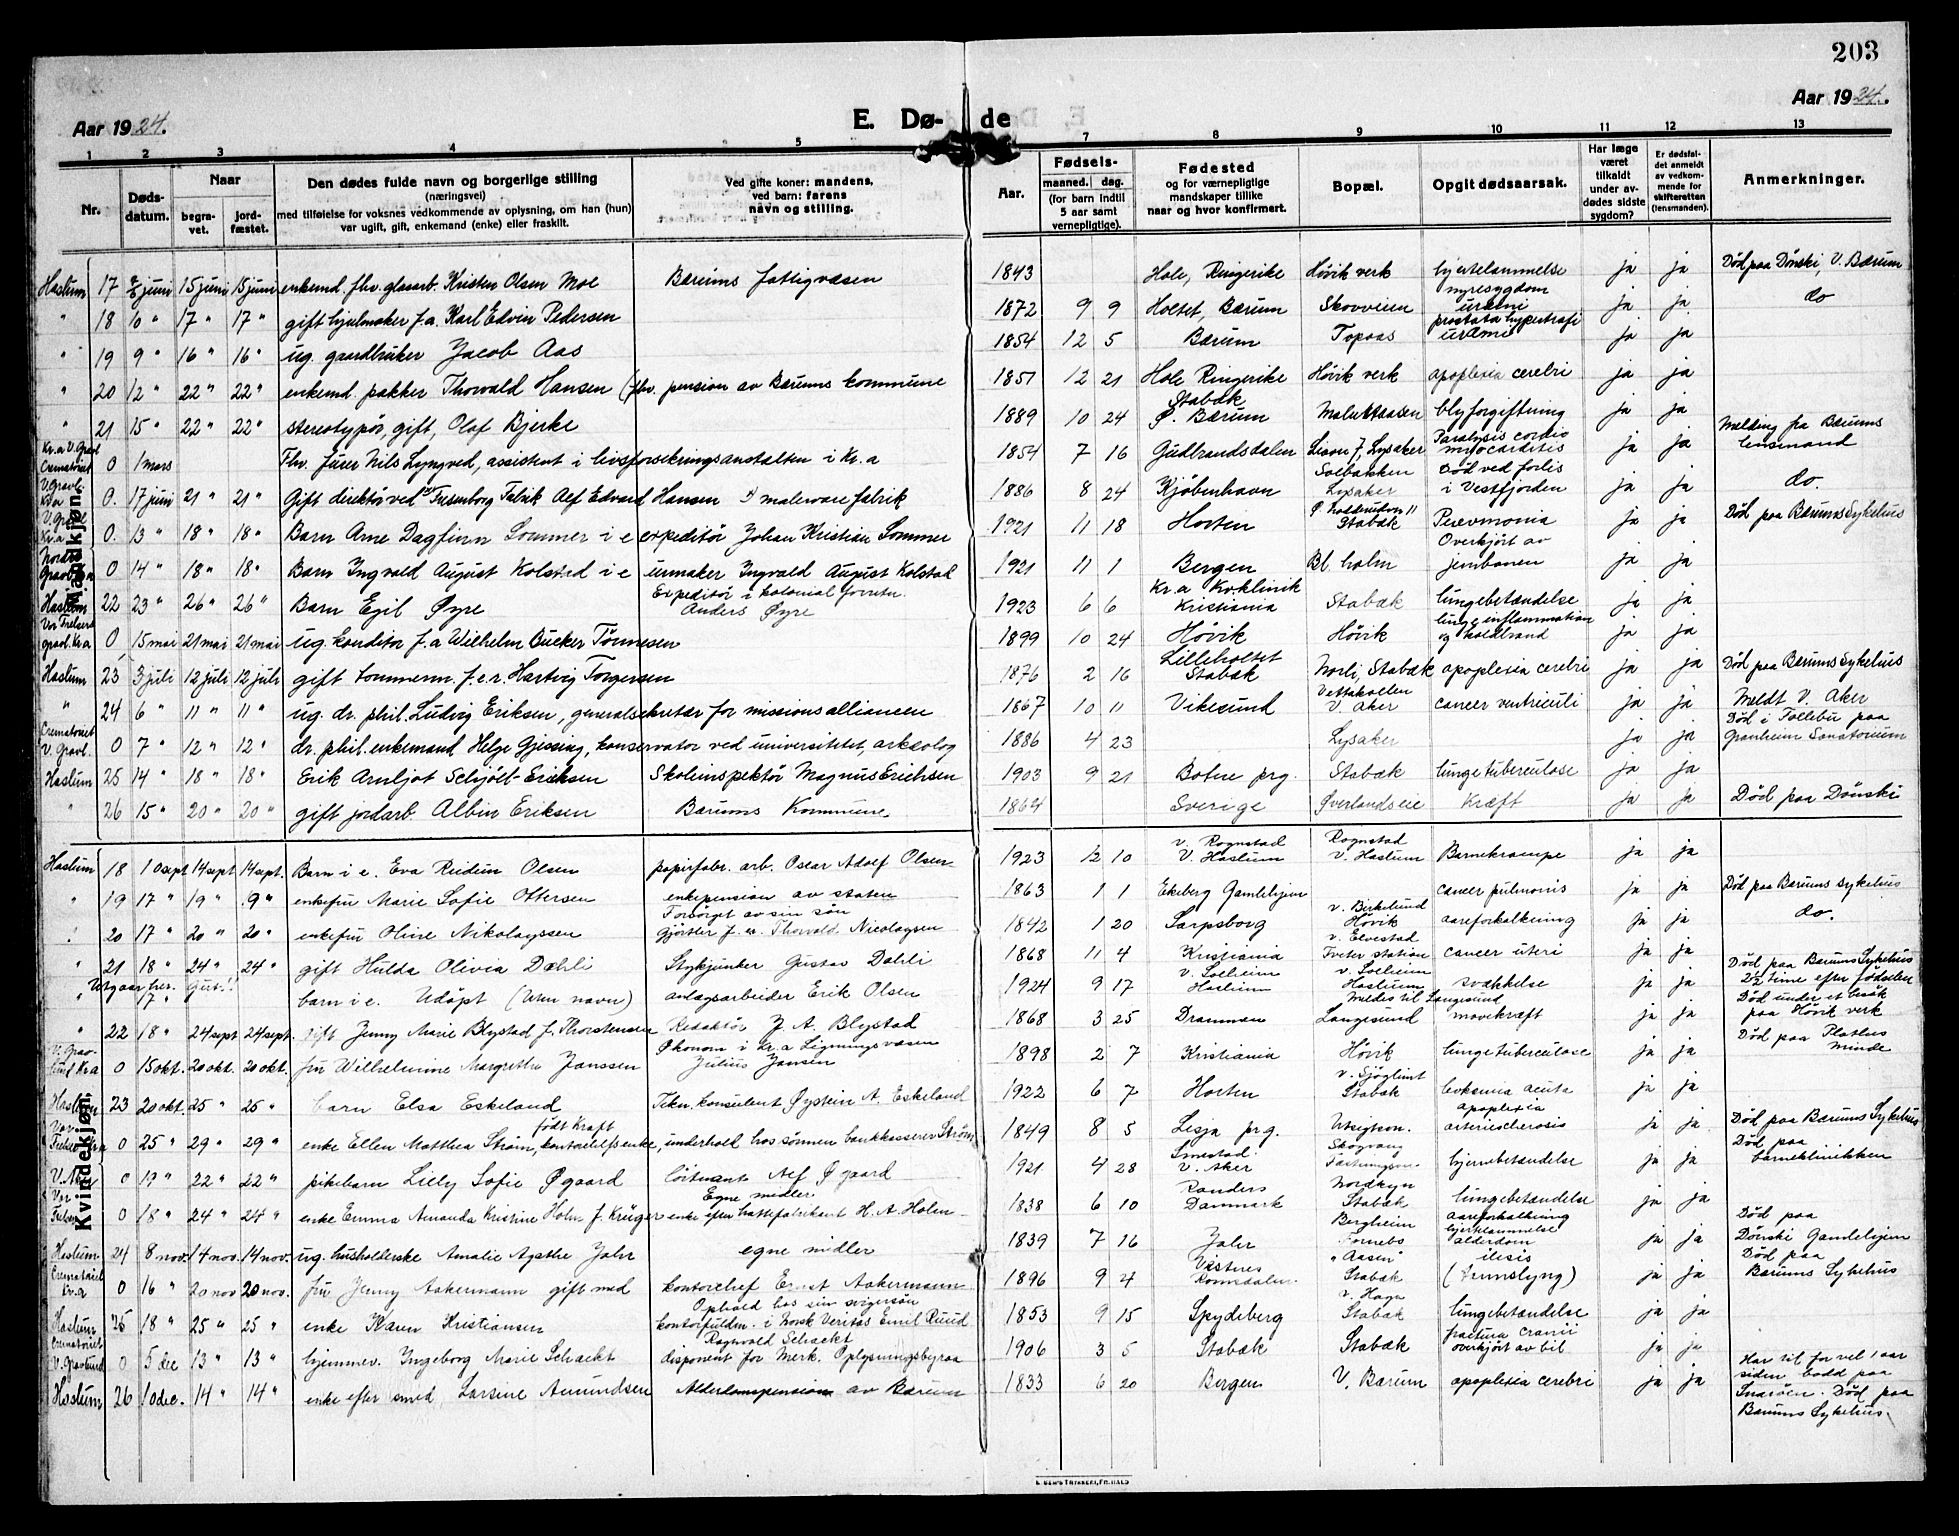 203
Aar 1924.
E. Dø- de
Aar 1924.
1 2 3 4 5 7 8 9 10 11 12 13
Nr.
Døds-datum.
Naar
begra-vet.
jord-fæstet.
Den dødes fulde navn og borgerlige stilling
(næringsvei)
med tilføielse for voksnes vedkommende av oplysning, om han (hun)
var ugift, gift, enkemand (enke) eller fraskilt.
Ved gifte koner: mandens,
ved barn: farens
navn og stilling.
Aar.
Fødsels-
maaned. dag.
(for barn indtil
5 aar samt
vernepligtige).
Fødested
og for værnepligtige
mandskaper tillike
naar og hvor konfirmert.
Bopæl.
Opgit dødsaarsak.
Har læge
været
tilkaldt
under av-
dødes sidste
sygdom?
Er dødsfal-
det anmeldt
av vedkom-
mende for
skifteretten
(lensmanden).
Anmerkninger.
Mandkjøn.
Haslum 17 2/6 juni 15 juni 15 juni enkemd. fhv. glasarb. Kristen Olsen Moe Bærums fattigvæsen 1843 Hole, Ringerike Høvik verk hjertelammelse ja ja Død paa Dønski, V. Bærum
" 18 10 " 17 " 17 " gift hjulmaker f.a. Karl Edvin Pedersen 1872 9 9 Holtet, Bærum Skovveien nyresygdom uræmi ja ja do
" 19 9 " 16 " 16 " ug. gaardbruker Jacob Aas 1854 12 5 Bærum Topaas prostata hypertrafi uræmi ja ja
" 20 12 " 22 " 22 " enkemd. pakker Thorvald Hansen (fhv. pension av Bærums kommune 1851 12 21 Hole Ringerike Høvik verk apoplexia cerebri ja ja
" 21 15 " 22 " 22 " stereotypør, gift, Olaf Bjerke 1889 10 24 Stabæk Ø. Bærum blyforgiftning ja ja
Kr.a V. Gravl. Crematoriet 0 1 mars Fhv. jurer Nils Lyngved, assistent i livsforsikringsanstalten i Kr.a 1854 7 16 Gudbrandsdalen Lysaker Paralysis cordis myocarditis ja ja Melding fra Bærums lensmand
V. Gravl. Kr.a 0. 17 juni 21 " 21 " Gift direktør ved Fabrik Alf Edvard Hansen malevarefabrik 1886 8 24 Kjøbenhavn Solbakken Lysaker Død ved forlis i Vestfjorden ja ja do.
V. Gravl. Kr.a 0. 13 " 18 " 18 " Barn Arne Dagfinn Sommer i e expeditør Johan Kristian Sommer 1921 11 18 Horten Stabæk Pnevmonia ja ja Død paa Bærums Sykehus
Nordre Gravl. 0 14 " 18 " 18 " Barn Ingvald August Kolstad i e urmaker Ingvald August Kolstad 1921 11 1 Bergen Bl. holm Overkjørt av jernbanen ja ja
Haslum 22 23 " 26 " 26 " Barn Egil Øyre Expeditør i kolonial forretn. Anders Øyre 1923 6 6 Kr.a Kv.klinik Kristiania Stabæk lungebetændelse ja ja
Vor Frelsers grav. Kr.a 0 15 mai 21 mai 21 mai ug. konditor f.a. Wilhelm Bucker Tønnesen 1899 10 24 Høvik Høvik lungeinflammation og koldbrand ja ja
Haslum 23 3 juli 12 juli 12 juli gift tømmerm. f.e.r. Hartvig Torgersen 1876 2 16 Lilleholtet Stabæk Norli, Stabæk apoplexia cerebri ja ja Død paa Bærums Sykehus
" 24 6 " 11 " 11 " ug. dr. phil. Ludvig Eriksen, generalsekretær for missionsalliancen 1867 10 11 Vikesund Vettakollen V. Aker cancer ventriculi ja ja Meldt V. Aker
Crematoriet V. Gravl. 0 7 " 12 " 12 " dr. phil. enkemand Helge Gjessing, konservator ved universitetet, arkeolog 1886 4 23 Lysaker ja ja Død i Follebu paa Granheim Sanatorium
Haslum 25 14 " 18 " 18 " Erik Arnljot Schjölt-Eriksen Skoleinspektør Magnus Erichsen 1903 9 21 Botne prg. Stabæk lungetuberculose ja ja
" 26 15 " 20 " 20 " gift jordarb Albin Eriksen Bærums Kommune 1864 Sverige Øverlandseie Kræft ja ja Død paa Dønski
Kvindekjøn.
Haslum 18 10 sept 14 sept 14 sept. Barn i e. Eva Reidun Olsen papirfabr. arb. Oscar Adolf Olsen 1923 12 10 v. Rognstad V. Haslum Rognstad v. Haslum Barnekrampe ja ja
" 19 17 " 19 " 9 " enkefru Marie Sofie Ottersen enkepension av staten 1863 1 1 Ekeberg Gamlehjem cancer pulmonis ja ja Død paa Bærums Sykehus
" 20 17 " 20 " 20 " enkefru Oline Nikolayssen Forsørget av sin søn Gjørtler f. a. Thorvald Nicolaysen 1842 1 20 Sarpsborg v. Birkelund Høvik aareforkalkning ja ja do.
" 21 18 " 24 " 24 " gift Hulda Olivia Dæhli Stykjunker Gustav Dahli 1868 11 4 Kristiania v. Elvestad Tveter station cancer uteri ja ja Død paa Bærums Sykehus
Utgaar her. 17 " barn i e. Udøpt (Uten navn) anlægsarbeider Erik Olsen 1924 9 17 v. Solheim Haslum v. Solheim Haslum svækkelse ja ja 2½ time efter fødselen
" 22 18 " 24 sept 24 sept. gift Jenny Marie Blystad f. Thorstensen Redaktør J. A. Blystad 1868 3 25 Drammen Meldes til Langesund Langesund mavekræft ja ja Død under et besøk paa Høvik verk
V. Grav-lund Kr.a 0 15 okt. 20 okt. 20 okt. fru Wilhelmine Margrethe Janssen Økonom i Kr.a Ligningsvæsen Julius Jansen 1898 2 7 Kristiania Høvik lungetuberculose ja ja Død paa Plathes Minde
Haslum 23 20 okt. 25 " 25 " barn Elsa Eskeland Tekn. konsulent Øystein A. Eskeland 1922 6 7 Horten v. Sjøglimt Stabæk leuksmia acuta ja ja
0 25 " 29 " 29 " enke Ellen Matthea Strøm, født Kraft kontorchefsenke, underhold hos sønnen bankkasserer Strøm 1849 8 5 Lesja prg. Utsigten apoplexia arteriosclerosis ja ja Død paa Bærums Sykehus
V. Aker 0 19 " 22 " 22 " pikebarn Lilly Sofie Øgaard løitnant Alf Øgaard 1921 4 28 Smestad V. Aker Skogvang hjernebetændelse ja ja Død paa barneklinikken
Vor Frelsers 0 18 " 24 " 24 " enke Emma Amanda Kristine Holm f. Krüger Egne midler enke efter hattefabrikant H. A. Holm 1838 6 10 Randers Danmark Nordkyn Stabæk lungebetændelse aareforkalkning ja ja
Haslum 24 8 nov. 14 nov. 14 nov. ug. husholderske Amalie Agathe Jahr egne midler 1839 7 16 Jahr Bergheim Fornebo hjertelammelse alderdom ja ja Død paa Dønski Gamlehjem
Crematoriet Kr.a 0 16 " 20 nov 20 nov. fru Jenny Aakermann gift med kontorchef Ernst Aakermann 1896 9 4 Vestnes Romsdalen "Aasen" Stabæk ilesis (tarmslyng) ja ja Død paa Bærums Sykehus
Haslum 25 18 " 25 " 25 " enke Karen Kristiansen Ophold hos sin svigersøn kontorfuldm. i Norsk Veritas Emil Ruud 1853 9 15 Spydeberg v. Haga Stabæk lungebetændelse ja ja
Crematoriet V. Gravlund 0 5 dec 13 " 13 " hjemmev. Ingeborg Marie Schackt Ragnvald Schackt disponent for Merk. Oplysningsbyraa 1906 3 5 Stabæk Stabæk fractura cranii overkjørt av bil ja ja
Haslum 26 10 dec. 14 " 14 " enke efter smed, Larsine Amundsen Alderdomspension av Bærum 1833 6 20 Bergen V. Bærum apoplexia cerebri ja ja Har til for vel 1 aar siden bodd paa Snarøen. Død paa Bærums Sykehus.